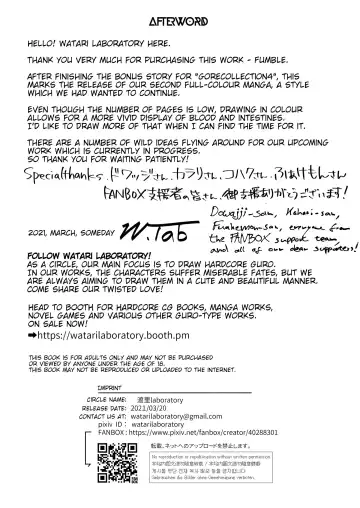 AFTERWORD
HELLO! WATARI LABORATORY HERE.
THANK YOU VERY MUCH FOR PURCHASING THIS WORK - FUMBLE.
AFTER FINISHING THE BONUS STORY FOR "GORECOLLECTION4", THIS
MARKS THE RELEASE OF OUR SECOND FULL-COLOUR MANGA, A STYLE
WHICH WE HAD WANTED TO CONTINUE.
EVEN THOUGH THE NUMBER OF PAGES IS LOW, DRAWING IN COLOUR
ALLOWS FOR A MORE VIVID DISPLAY OF BLOOD AND INTESTINES.
I'D LIKE TO DRAW MORE OF THAT WHEN I CAN FIND THE TIME FOR IT.
THERE ARE A NUMBER OF WILD IDEAS FLYING AROUND FOR OUR UPCOMING
WORK WHICH IS CURRENTLY IN PROGRESS.
SO THANK YOU FOR WAITING PATIENTLY!
Specialthanks ドワッジさん カラリさん コハクさん ふぁけもんさん
FANBOX支援者の皆さん、御支援ありがとうございます!
Dowajji-san, Kohaku-san,
Fuakemon-san, everyone from
the FANBOX support team,
and all of our dear supporters!
2021, MARCH, SOMEDAY
W.Tab
FOLLOW WATARI LABORATORY!
AS A CIRCLE, OUR MAIN FOCUS IS TO DRAW HARDCORE GURO.
IN OUR WORKS, THE CHARACTERS SUFFER MISERABLE FATES, BUT WE
ARE ALWAYS AIMING TO DRAW THEM IN A CUTE AND BEAUTIFUL MANNER.
COME SHARE OUR TWISTED LOVE!
HEAD TO BOOTH FOR HARDCORE CG BOOKS, MANGA WORKS,
NOVEL GAMES AND VARIOUS OTHER GURO-TYPE WORKS.
ON SALE NOW!
➡https://watarilaboratory.booth.pm
THIS BOOK IS FOR ADULTS ONLY AND MAY NOT BE PURCHASED
OR VIEWED BY ANYONE UNDER THE AGE OF 18.
THIS BOOK MAY NOT BE REPRODUCED OR UPLOADED TO THE INTERNET.
IMPRINT
CIRCLE NAME: 渡里laboratory
RELEASE DATE: 2021/03/20
CONTACT US AT: watarilaboratory@gmail.com
pixiv ID: watarilaboratory
FANBOX : https://www.pixiv.net/fanbox/creator/40288301
転載、ネットへのアップロードを禁止します。
No reproduction or republication without written permission.